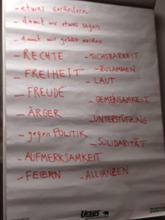 - etwas verändern
- damit wir etwas sagen
- damit wir gehört werden
- RECHTE
- SICHTBARKEIT
- FREIHEIT
- ZUSAMMEN
- LAUT
- FREUDE
- GEMEINSAMKEIT
- ÄRGER
- UNTERSTÜTZUNG
- gegen POLITIK
- SOLIDARITÄT
- AUFMERKSAMKEIT
- FEIERN
- ALLIANZEN